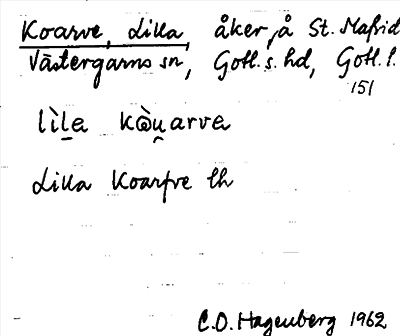 Koarve, Lilla, åker, å St. Mafrid
Västergarns sn, Gotl. s. hd, Gotl. l.
151
lìl̲e kòu̯arve
Lilla Koarfve lh
C.O. Hagenberg 1962